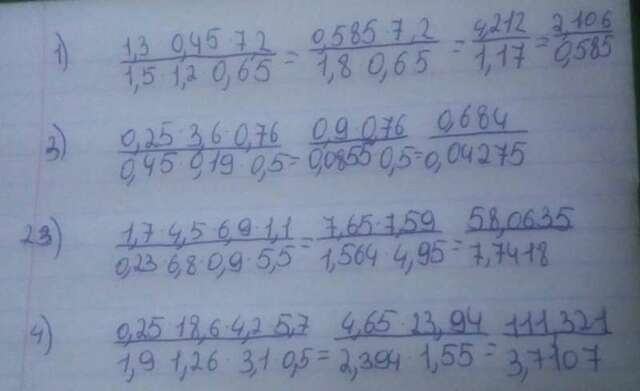 1) 1,3 · 0,45 · 7,2 / 1,5 · 1,2 · 0,65 = 0,585 · 7,2 / 1,8 · 0,65 = 4,212 / 1,17 = 2,106 / 0,585
3) 0,25 · 3,6 · 0,76 / 0,45 · 0,19 · 0,5 = 0,9 · 0,76 / 0,0855 · 0,5 = 0,684 / 0,04275
23) 1,7 · 4,5 · 6,9 · 1,1 / 0,23 · 6,8 · 0,9 · 5,5 = 7,65 · 7,59 / 1,564 · 4,95 = 58,0635 / 7,7418
4) 0,25 · 18,6 · 4,2 · 5,7 / 1,9 · 1,26 · 3,1 · 0,5 = 4,65 · 23,94 / 2,394 · 1,55 = 111,321 / 3,7107